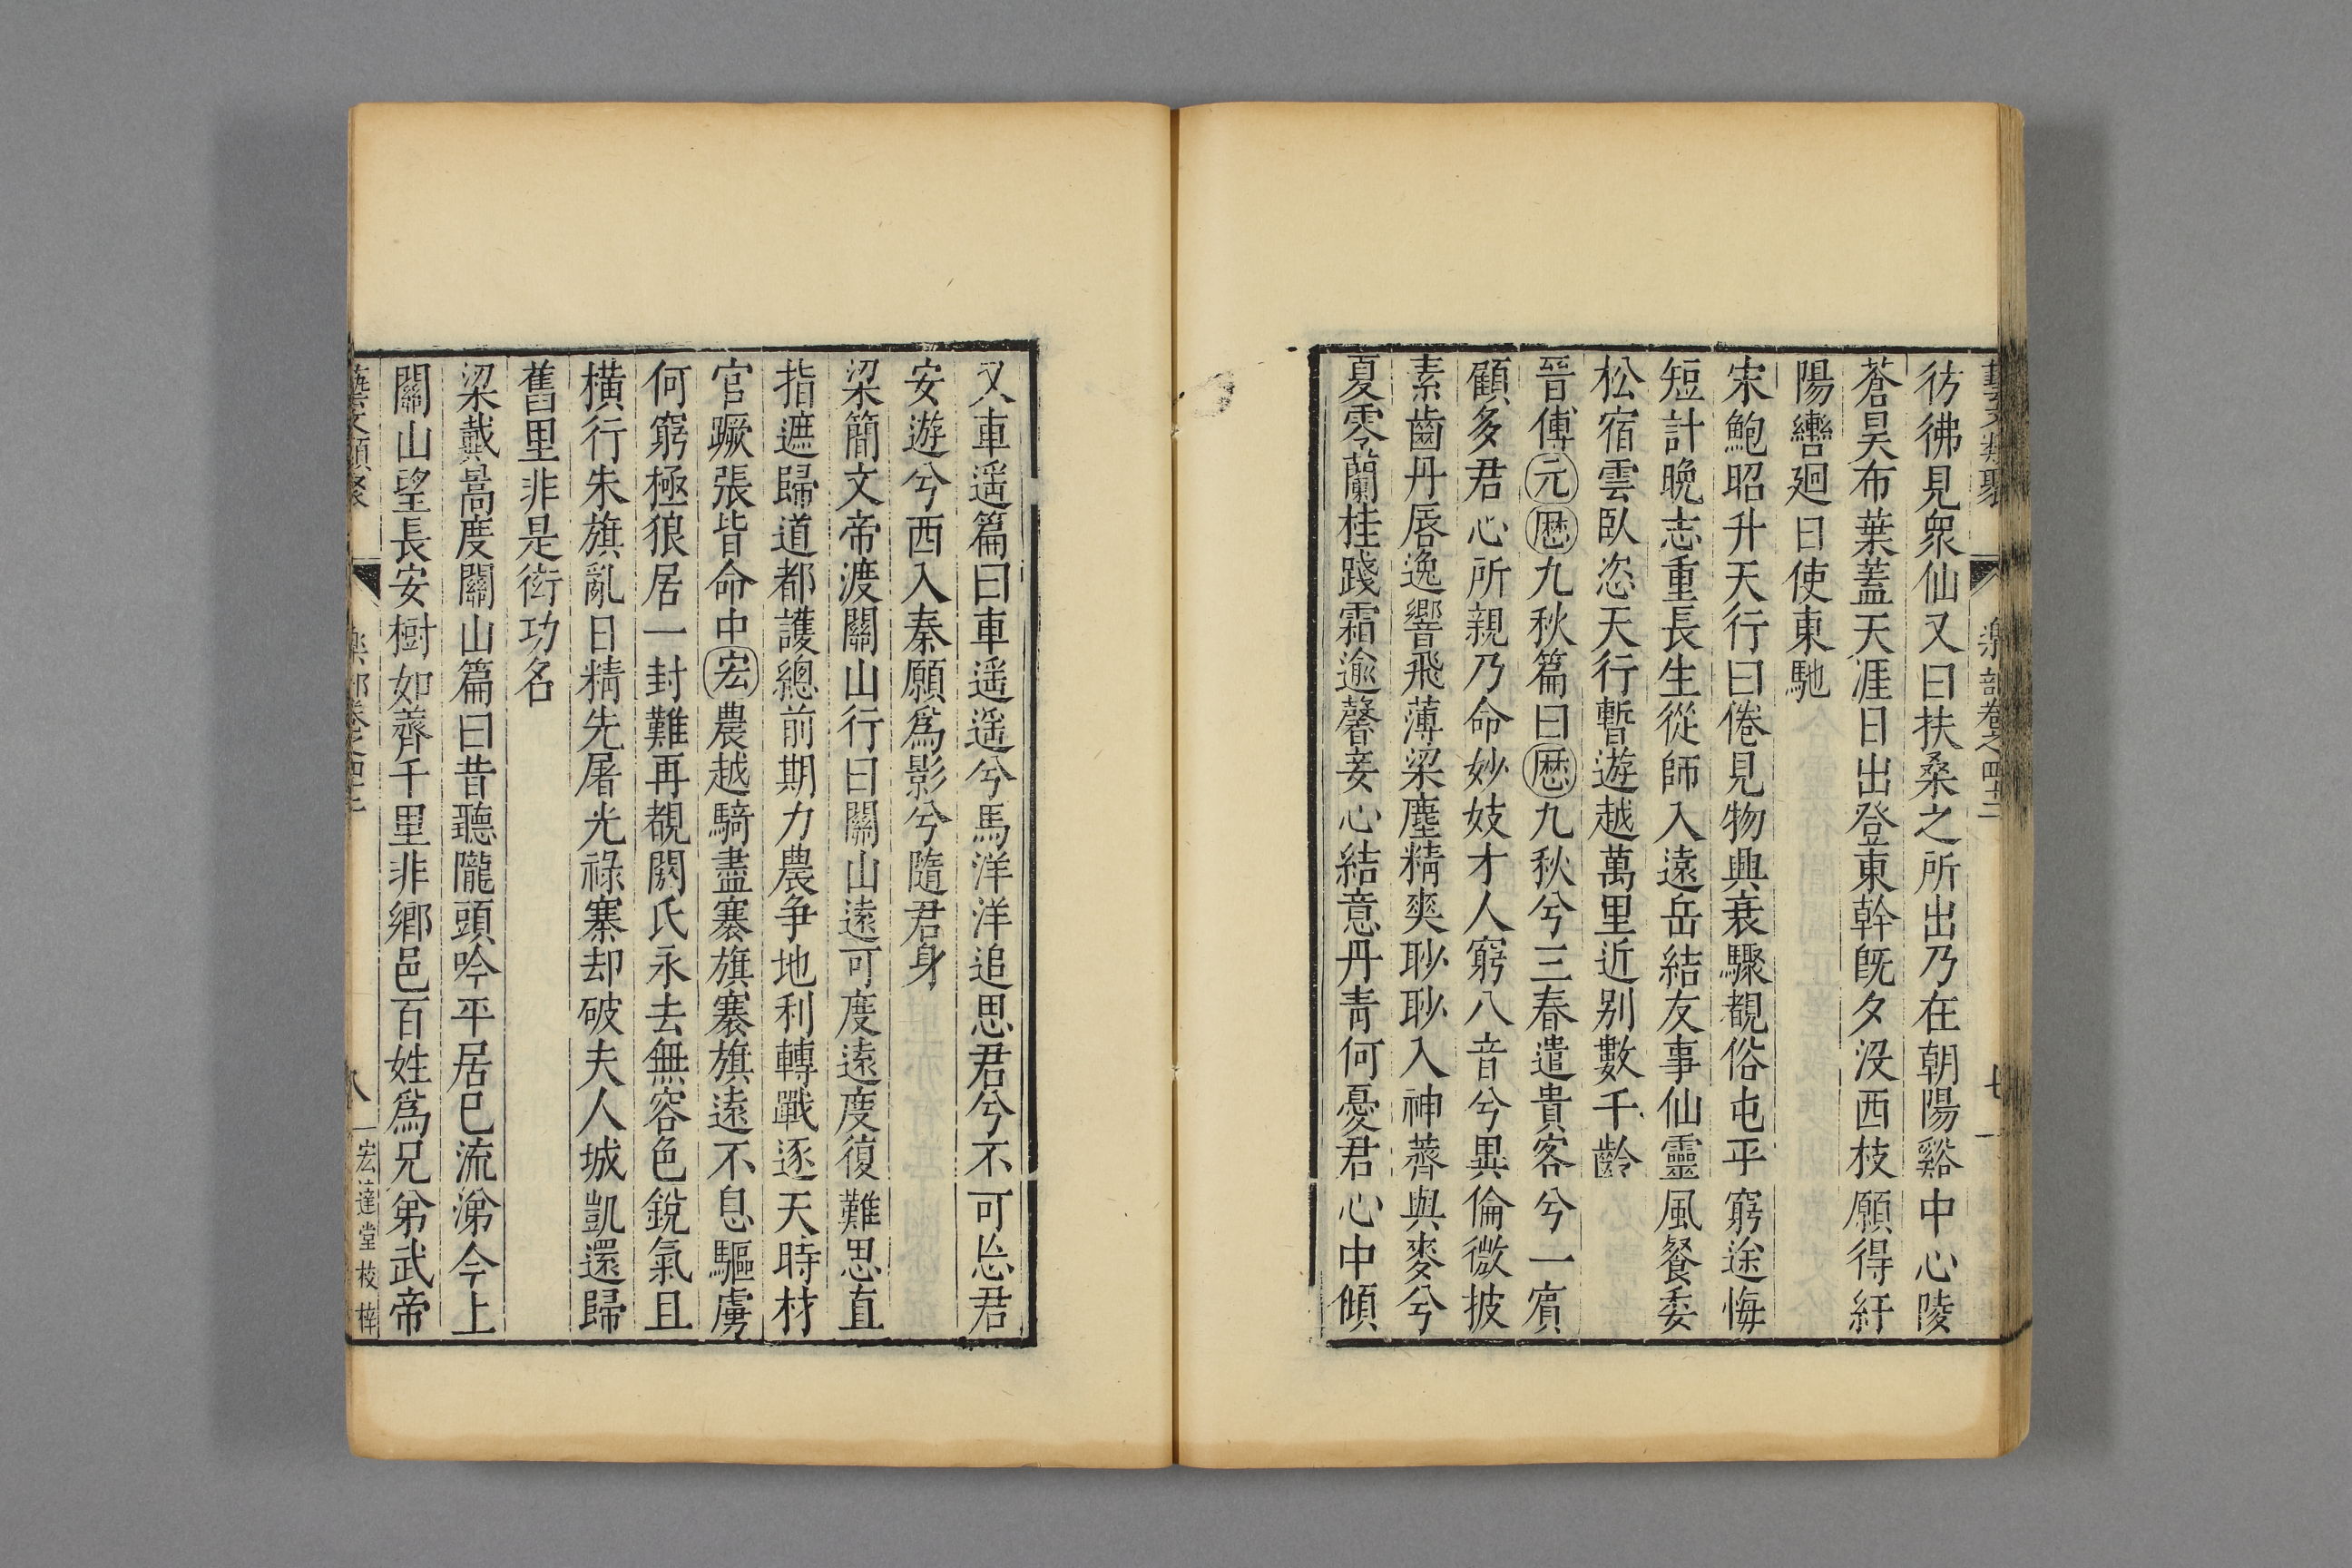 藝文類聚 樂部卷之四十二 七
彷彿見衆仙又曰扶桑之所出乃在朝陽谿中心陵
蒼昊布葉蓋天涯日出登東幹旣夕没西枝願得紆
陽轡廻日使東馳
宋鮑昭升天行曰倦見物興衰驟覩俗屯平窮途悔
短計晩志重長生從師入遠岳結友事仙靈風餐委
松宿雲臥恣天行暫遊越萬里近别數千齡
晉傅元厯九秋篇曰厯九秋兮三春遣貴客兮一賔
顧多君心所親乃命妙妓才人窮八音兮異倫微披
素齒丹唇逸響飛薄梁塵精爽耿耿入神薺與麥兮
夏零蘭桂踐霜逾馨妾心結意丹青何憂君心中傾
又車遥篇曰車遥遥兮馬洋洋追思君兮不可忘君
安遊兮西入秦願爲影兮隨君身
梁簡文帝渡關山行曰關山遠可度遠度復難思直
指遮歸道都護總前期力農争地利轉戰逐天時材
官蹶張皆命中宏農越騎盡搴旗搴旗遠不息驅虜
何窮極狼居一封難再覩閼氏永去無容色銳氣且
橫行朱旗亂日精先屠光祿寨却破夫人城凱還歸
舊里非是衒功名
梁戴暠度關山篇曰昔聽隴頭吟平居已流涕今上
關山望長安樹如薺千里非鄉邑百姓爲兄弟武帝
藝文類聚 樂部卷之四十二 八 宏達堂校梓